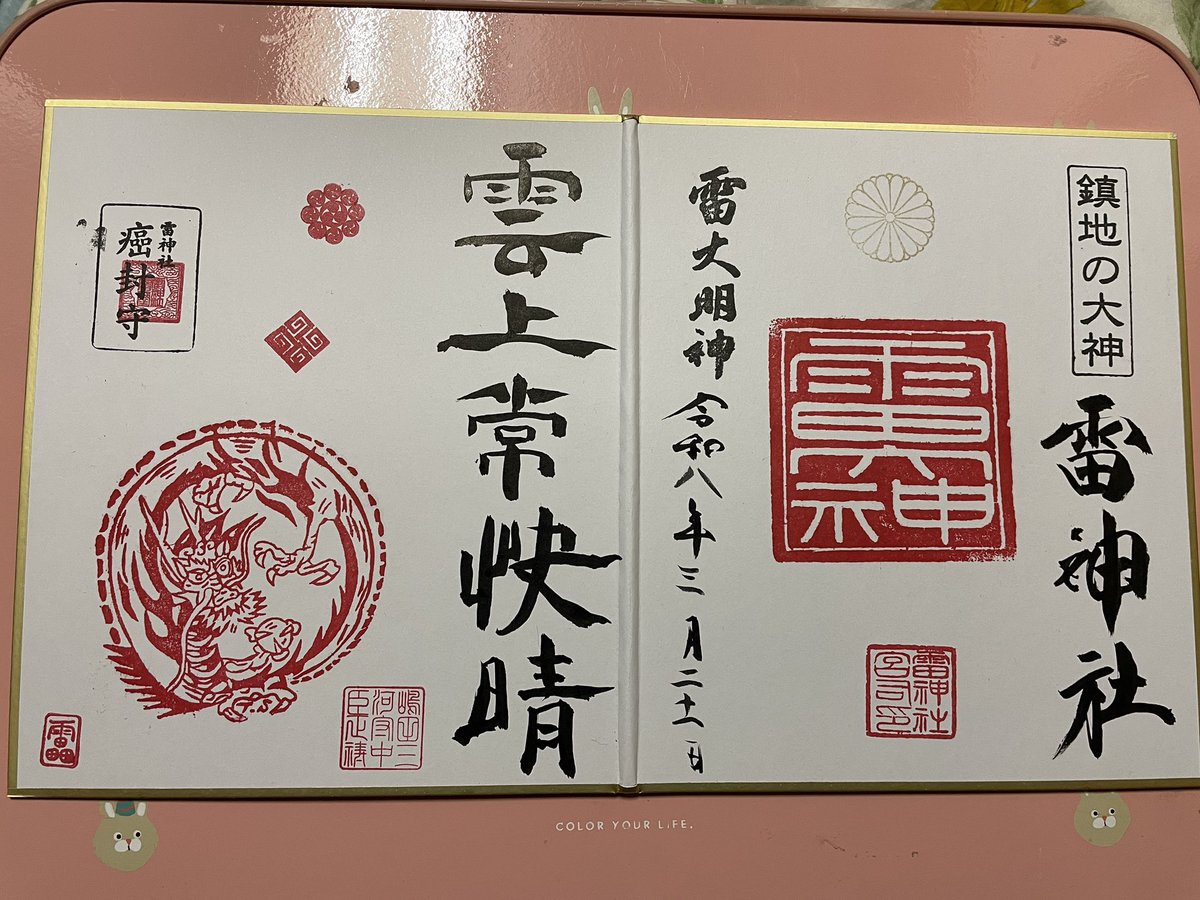 鎮地の大神
雷神社
雷神
雷神社宮司之印
雷大明神
令和八年三月二十一日
雲上常快晴
雷神社
癌封守
COLOR YOUR LiFE.